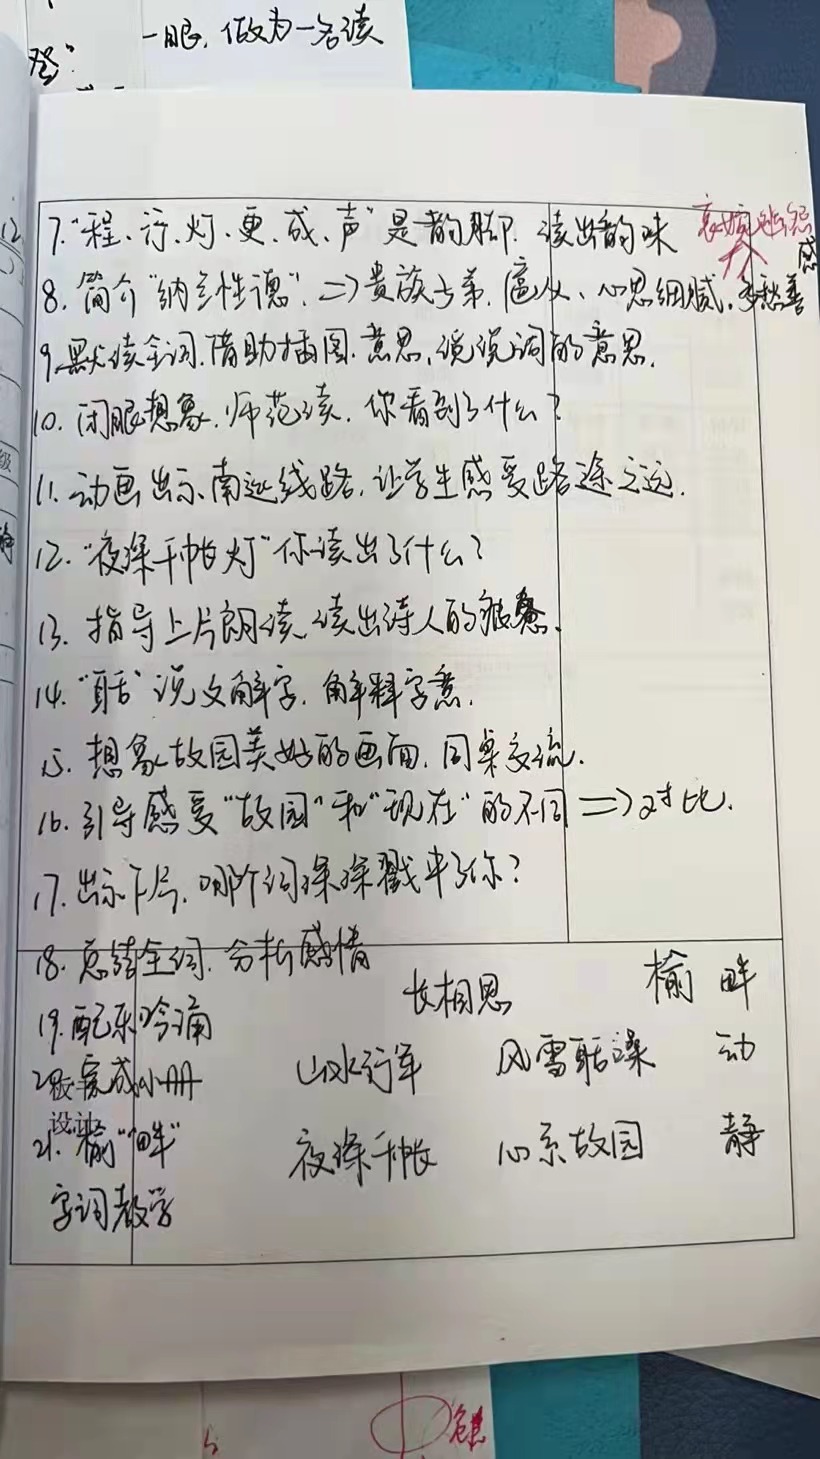 一眼,做为一名读
7.“程、行、灯、更、成、声”是韵脚.读出韵味
8.简介“纳兰性德”.=>贵族子弟.扈从、心思细腻.多愁善感
9.默读全词.借助插图.意思,说说词的意思.
10.闭眼想象.师范读.你看到了什么?
11.动画出示南巡线路.让学生感受路途之远.
12.“夜深千帐灯”你读出了什么?
13.指导上片朗读.读出诗人的疲惫.
14.“聒”说文解字.解释字意.
15.想象故园美好的画面.同桌交流.
16.引导感受“故园”和“现在”的不同=>对比.
17.出示下片.哪个词深深戳中了你?
18.总结全词.分析感情
19.配乐吟诵
21.榆“畔”
字词教学
设计
长相思 榆 畔
山水行军 风雪聒噪 动
夜深千帐 心系故园 静